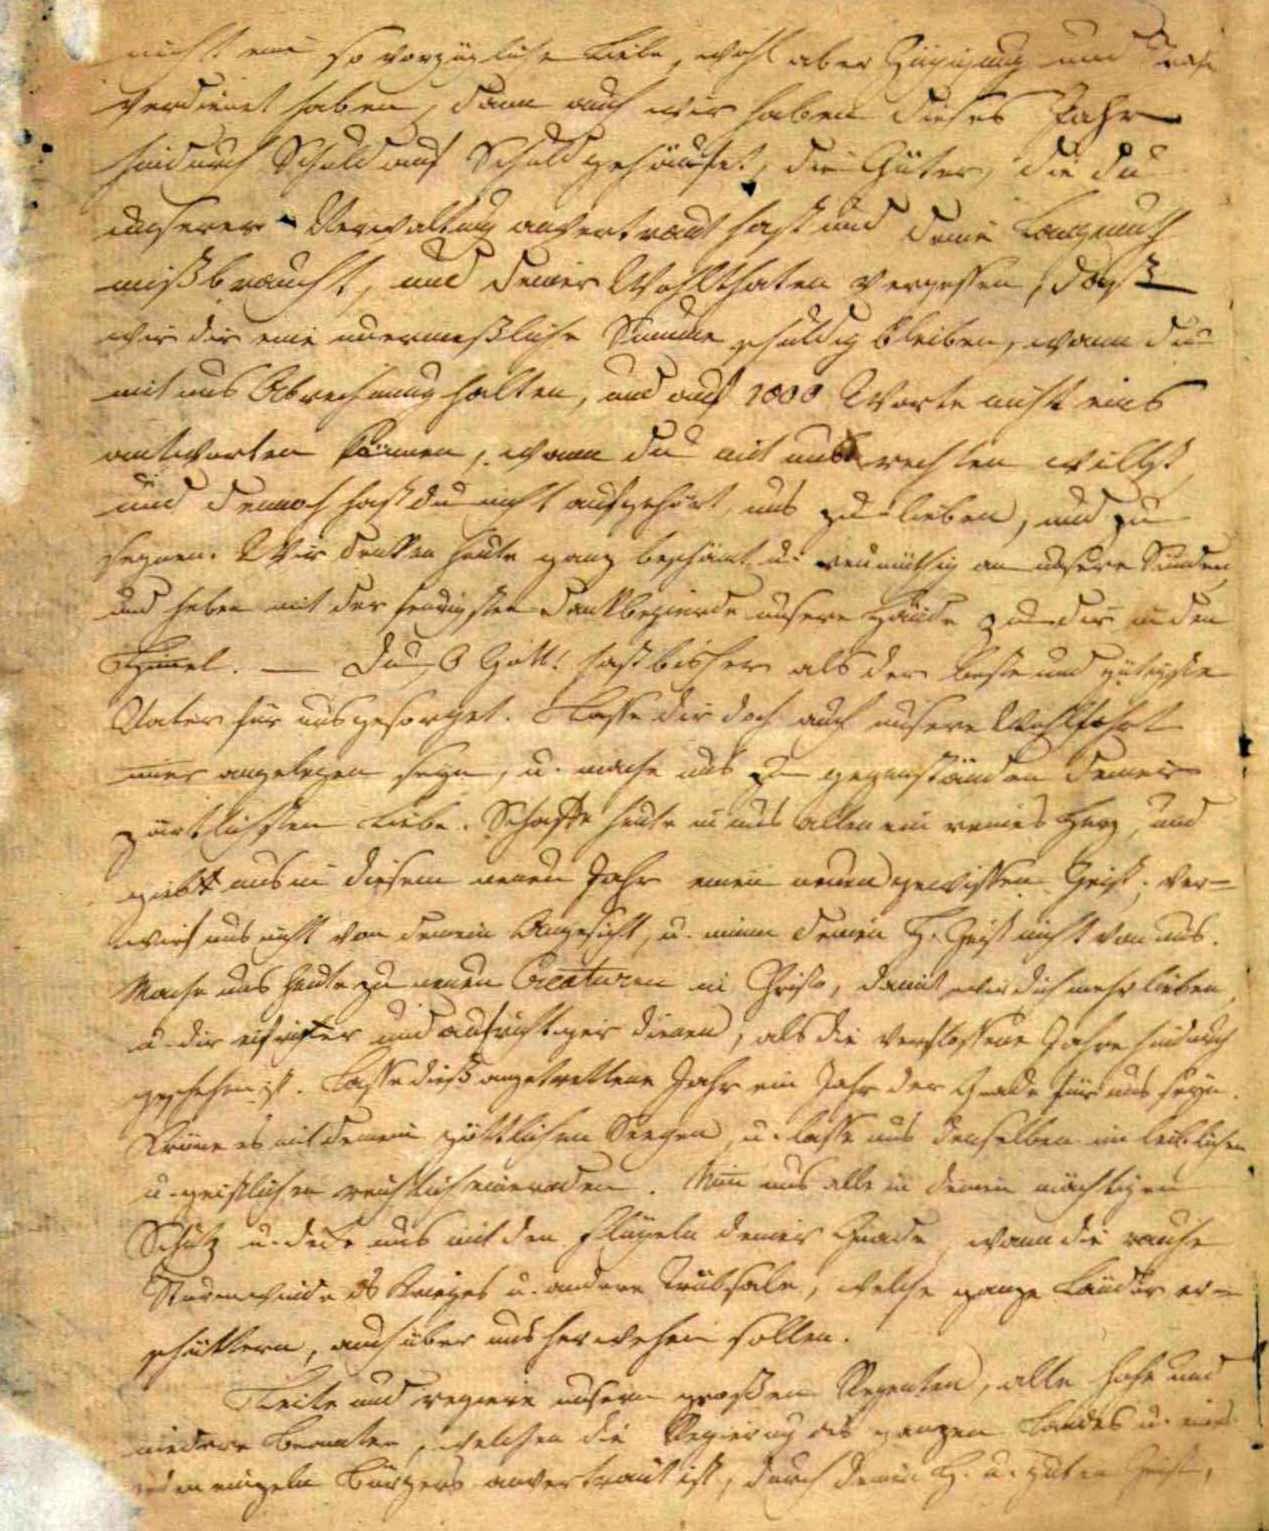 nicht eine so vorzügliche Liebe, wohl aber Züchtigung und
verdienet haben, dann auch wir haben dieses Jahr
hindurch Schuld auf Schuld gehäufet, die Güter, die du
unserer Verwaltung anvertraut hast und deine Langmuth
mißbraucht, und deiner Wohlthaten vergessen, daß
wir dir eine unermeßliche Summe schuldig bleiben, wann du
mit uns Abrechnung halten, und auf 1000 Worte nicht eins
antworten können, wann du mit uns rechten willst
und dennoch hast du nicht aufgehört, uns zu lieben, und zu
segnen. Wir denken heute ganz beschämt u. reumüthig an unsere Sünden
und heben mit der Dankbegierde unsere Hände zu dir in den
Himmel. — Du O Gott! hast bisher als der beste und gütigste
Vater für uns gesorget. Lasse dir doch auch unsere Wohlfahrt
angelegen seyn, u. mache uns zu gegenständen deiner
zärtlichsten Liebe. Schaffe heute in uns allen ein reines Herz, und
gieb uns in diesem neuen Jahr einen neuen gewissen Geist; ver-
wirf uns nicht von deinem Angesicht, u. nimm deinen H. Geist nicht von uns.
Mache uns heute zu neuen Creaturen in Christo, damit wir dich mehr lieben,
u. dir eifriger und aufrichtiger dienen, als die verflossene Jahre hindurch
geschehen ist. Lasse dieß angetrettene Jahr ein Jahr der Gnade für uns seyn.
Kröne es mit deinem göttlichen Seegen, u. lasse uns denselben im leiblichen
u. geistlichen reichlich einernden. Nimm uns alle in deinen mächtigen
Schutz u. decke uns mit den Flügeln deiner Gnade, wann die rauhe
Sturmwinde des Krieges u. andere Trübsale, welche ganze Länder er-
schüttern, auch über uns herwehen sollen.
Leite und regiere unsern großen Regenten, alle hohe und
niedere Beamten, welchen die Regierung des ganzen Landes u. eines
jeden einzeln Bürgers anvertraut ist, durch deinen H. u. guten Geist,